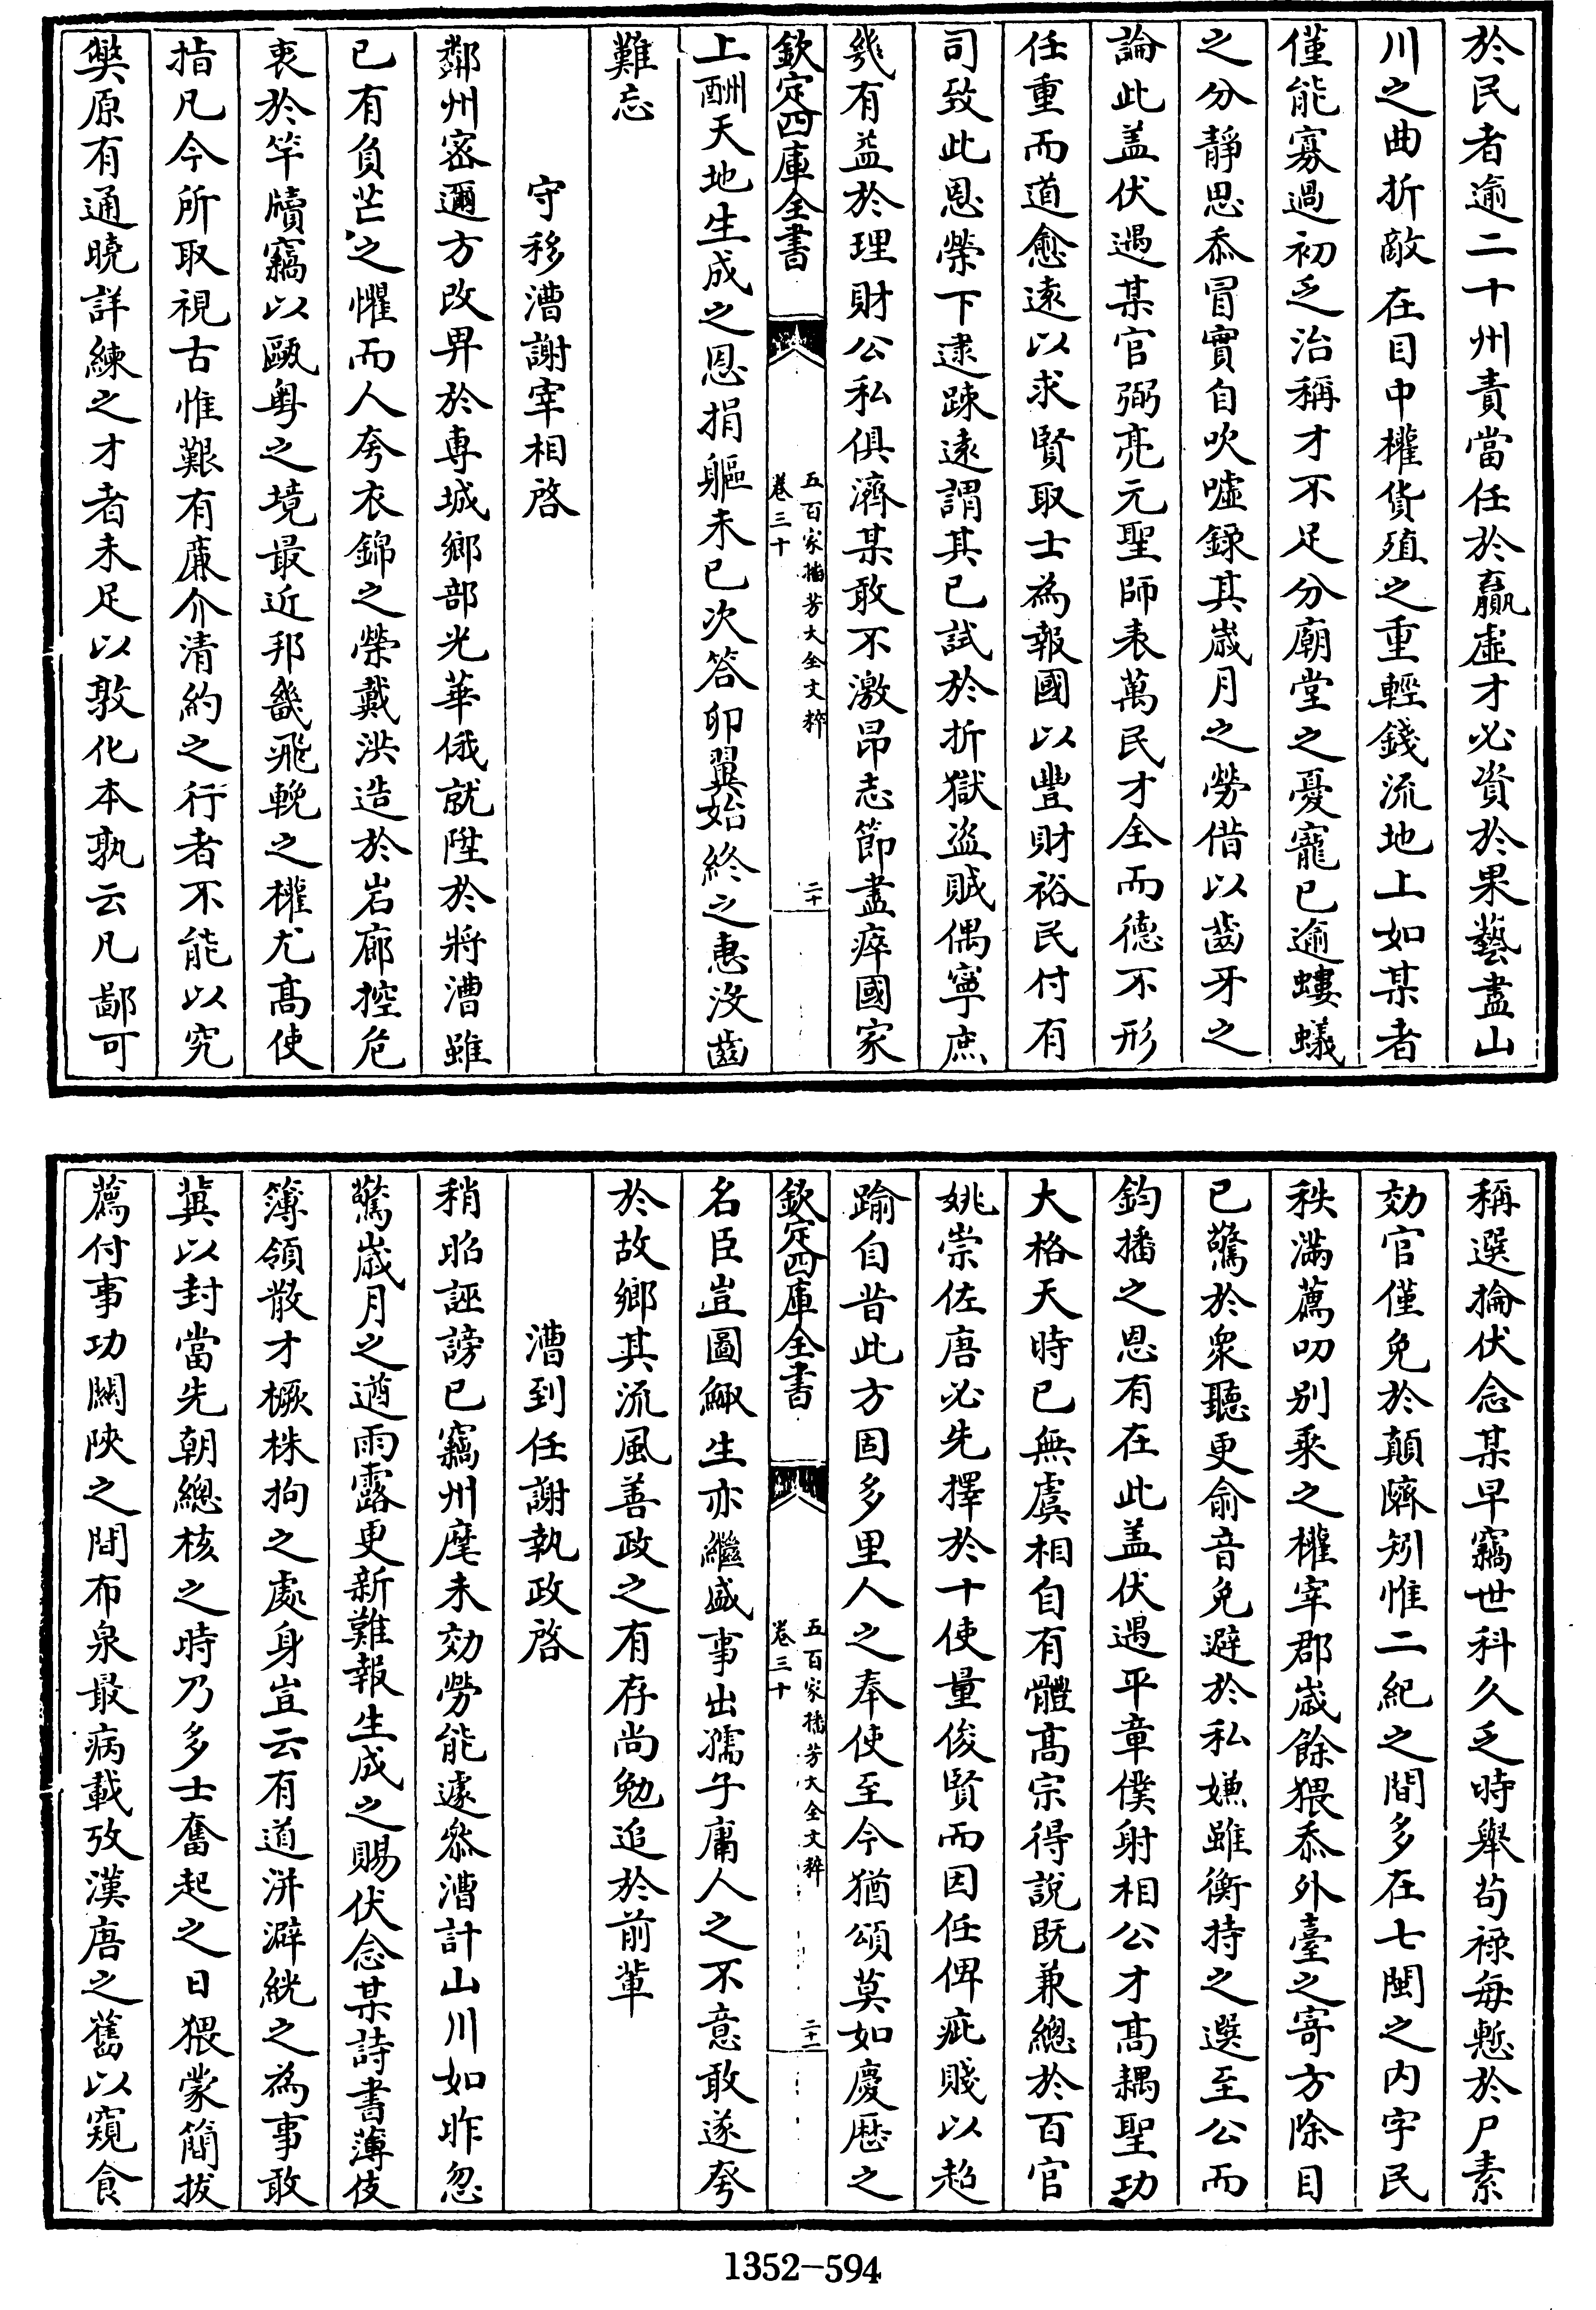 於民者逾二十州責當任於贏虛才必資於果藝盡山
川之曲折敵在目中權貨殖之重輕錢流地上如某者
僅能寡過初乏治稱才不足分廟堂之憂寵已逾螻蟻
之分靜思忝冒實自吹噓錄其歲月之勞借以齒牙之
論此盖伏遇某官弼亮元聖師表萬民才全而德不形
任重而道愈遠以求賢取士為報國以豐財裕民付有
司致此恩榮下逮踈遠謂其已試於折獄盗賊偶寧庶
幾有益於理財公私俱濟某敢不激昂志節盡瘁國家
欽定四庫全書
五百家播芳大全文粹
卷三十
二十
上酬天地生成之恩捐軀未已次答卵翼始終之惠沒齒
難忘
守移漕謝宰相啓
鄰州密邇方改畀於專城鄉部光華俄就陞於將漕雖
已有負芒之懼而人夸衣錦之榮戴洪造於岩廊控危
衷於竿牘竊以甌粵之境最近邦畿飛輓之權尤高使
指凡今所取視古惟艱有廉介清約之行者不能以究
樊原有通曉詳練之才者未足以敦化本孰云凡鄙可
稱選掄伏念某早竊世科久乏時舉苟祿每慙於尸素
効官僅免於顛隮矧惟二紀之間多在七閩之内字民
秩滿薦叨别乘之權宰郡歲餘猥忝外臺之寄方除目
已驚於衆聽更俞音免避於私嫌雖衡持之選至公而
鈞播之恩有在此盖伏遇平章僕射相公才高耦聖功
大格天時已無虞相自有體高宗得說既兼總於百官
姚崇佐唐必先擇於十使量俊賢而因任俾疵賤以超
踰自昔此方固多里人之奉使至今猶頌莫如慶歴之
欽定四庫全書
五百家播芳大全文粹
卷三十
二十一
名臣豈圖鯫生亦繼盛事出孺子庸人之不意敢遂夸
於故鄉其流風善政之有存尚勉追於前輩
漕到任謝執政啓
稍昭誣謗已竊州麾未効勞能遽叅漕計山川如昨忽
驚歲月之遒雨露更新難報生成之賜伏念某詩書薄伎
簿領散才橛株拘之處身豈云有道洴澼絖之為事敢
冀以封當先朝總核之時乃多士奮起之日猥蒙簡拔
薦付事功關陜之間布泉最病載攷漢唐之舊以窺食
1352-594